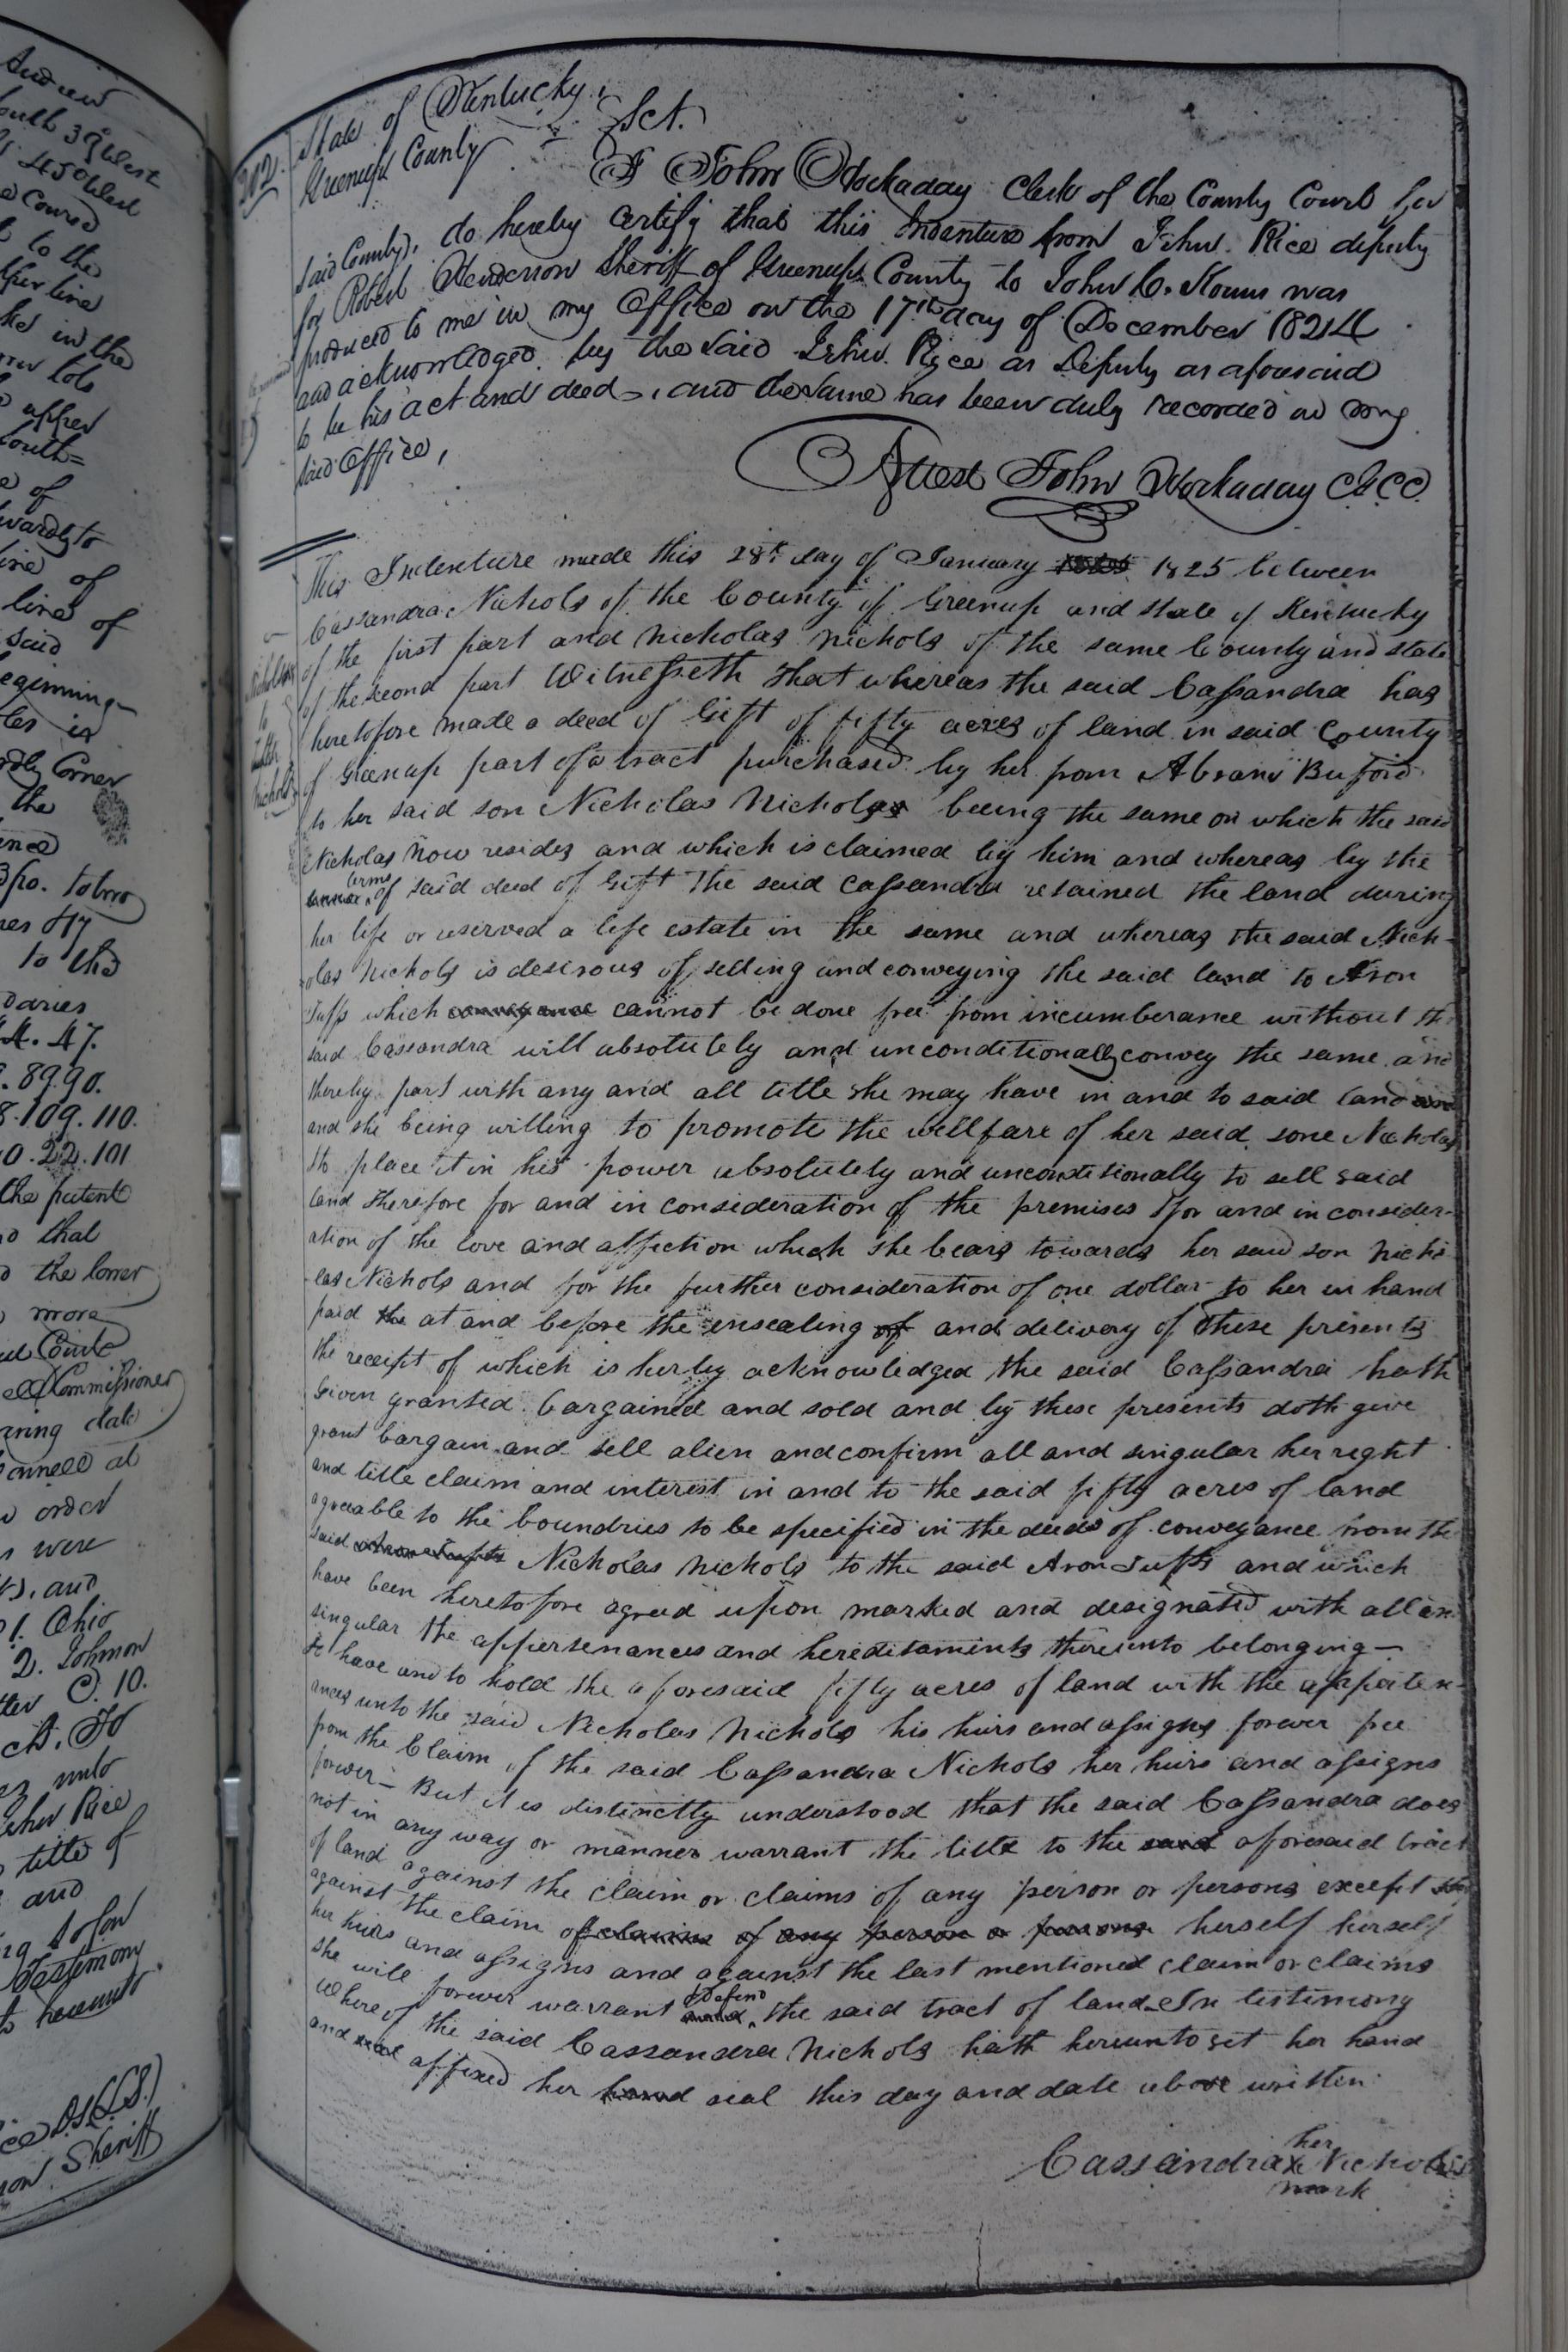 Andrew
South 39 West
S. 45 West
Coun
to the
in the
lots
upper
South=
of
wardly to
line of
line of
said
Beginning
is
Corner
the
3 po. to two
to the
4. 47.
89.90.
8.109.110.
0.22.101
the patent
that
the lower
more
Commissioner
bearing date
at
order
were
and
1. Ohio
2. Johnson
O. 10.
unto
John Rice
title of
and
Testimony
hereunto
D.S. (L.S.)
Sheriff
202.
State of Kentucky,
Greenup County Sct.
I John Hockaday Clerk of the County Court for
said County, do hereby certify that this Indenture from John Rice deputy
for Robert Henderson Sheriff of Greenup County to John C. Kouns was
produced to me in my Office on the 17th day of December 1824
and acknowledged by the said John Rice as Deputy as aforesaid
to be his act and deed, and the same has been duly recorded in my
said Office,
Attest John Hockaday C.G.C.C.
Nichols
to
Nichols
This Indenture made this 28th day of January 1825 between
Cassandra Nichols of the County of Greenup and state of Kentucky
of the first part and Nicholas Nichols of the same County and state
of the second part Witnesseth that whereas the said Cassandra has
heretofore made a deed of Gift of fifty acres of land in said County
of Greenup part of a tract purchased by her from Abram Buford
to her said son Nicholas Nichols being the same on which the said
Nicholas now resides and which is claimed by him and whereas by the
terms of said deed of Gift the said Cassandra retained the land during
her life or reserved a life estate in the same and whereas the said Nich-
olas Nichols is desirous of selling and conveying the said land to Aron
Tufts which conveyance cannot be done free from incumberance without the
said Cassandra will absolutely and unconditionally convey the same and
thereby part with any and all title she may have in and to said land and
and she being willing to promote the wellfare of her said sone Nicholas
to place it in his power absolutely and unconditionally to sell said
land therefore for and in consideration of the premises & for and in consider-
ation of the love and affection which she bears towards her said son Nicho
las Nichols and for the further consideration of one dollar to her in hand
paid the at and before the ensealing of and delivery of these presents
the receipt of which is herby acknowledged the said Cassandra hath
Given granted bargained and sold and by these presents doth give
grant bargain and sell alien and confirm all and singular her right
and title claim and interest in and to the said fifty acres of land
agreeable to the boundries to be specified in the deeds of conveyance from the
said Aron Tufts Nicholas Nichols to the said Aron Tufts and which
have been heretofore agreed upon marked and designated with all and
singular the appertenances and hereditaments thereunto belonging—
to have and to hold the aforesaid fifty acres of land with the apperten-
ances unto the said Nicholas Nichols his heirs and assigns forever free
from the Claim of the said Cassandra Nichols her heirs and assigns
forever— But it is distinctly understood that the said Cassandra does
not in any way or manner warrant the title to the said aforesaid tract
of land against the claim or claims of any person or persons except the
against the claim of claims of any person or persons herself herself
her heirs and assigns and against the last mentioned claim or claims
she will forever warrant & Defend the said tract of land—In testimony
Whereof the said Cassandra Nichols hath hereunto set her hand
and seal affixed her hand seal this day and date above written
Cassandra her X mark Nichols